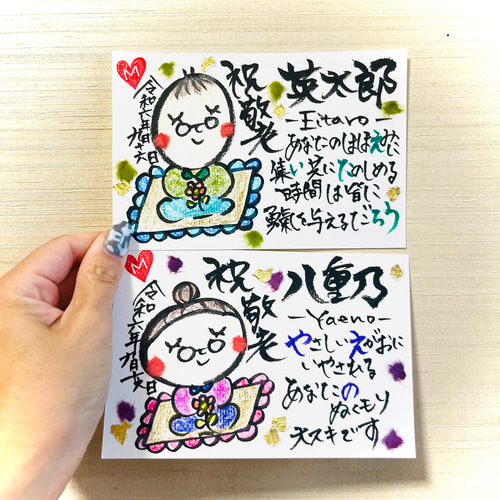 M
令和六年九月十六日
祝敬老
英太郎
-Eitaro-
あなたのほほえみに
集い共にたのしめる
時間は皆に
勇気を与えるだろう
M
令和六年九月十六日
祝敬老
八重乃
-Yaeno-
やさしいえがおに
いやされる
あなたのぬくもり
大スキです